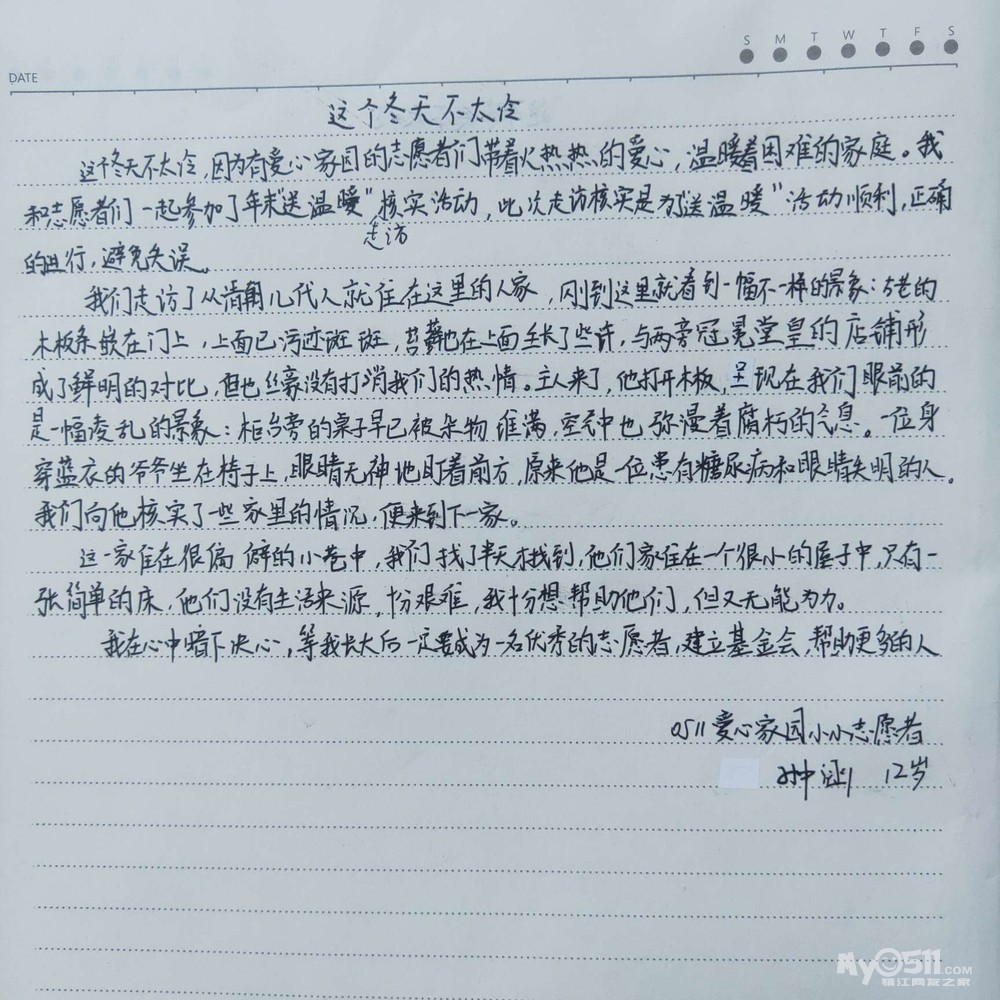 S M T W T F S
DATE
这个冬天不太冷
这个冬天不太冷,因为有爱心家园的志愿者们带着火热热的爱心,温暖着困难的家庭。我
和志愿者们一起参加了年末“送温暖”走访核实活动,此次走访核实是为了“送温暖”活动顺利,正确
的进行,避免失误。
我们走访了从清朝几代人就住在这里的人家,刚到这里就看到一幅不一样的景象:古老的
木板条嵌在门上,上面已污迹斑斑,苔藓也在上面生长了些许,与两旁冠冕堂皇的店铺形
成了鲜明的对比,但也丝豪没有打消我们的热情。主人来了,他打开木板,呈现在我们眼前的
是一幅凌乱的景象:柜台旁的桌子早已被杂物堆满,空气中也弥漫着腐朽的气息。一位身
穿蓝衣的爷爷坐在椅子上,眼睛无神地盯着前方,原来他是一位患有糖尿病和眼睛失明的人。
我们向他核实了一些家里的情况,便来到下一家。
这一家住在很偏僻的小巷中,我们找了半天才找到,他们家住在一个很小的屋子中,只有一
张简单的床,他们没有生活来源,十分艰难,我十分想帮助他们,但又无能为力。
我在心中暗下决心,等我长大后一定要成为一名优秀的志愿者,建立基金会,帮助更多的人
0511爱心家园小小志愿者
12岁
My0511.COM
镇江网友之家